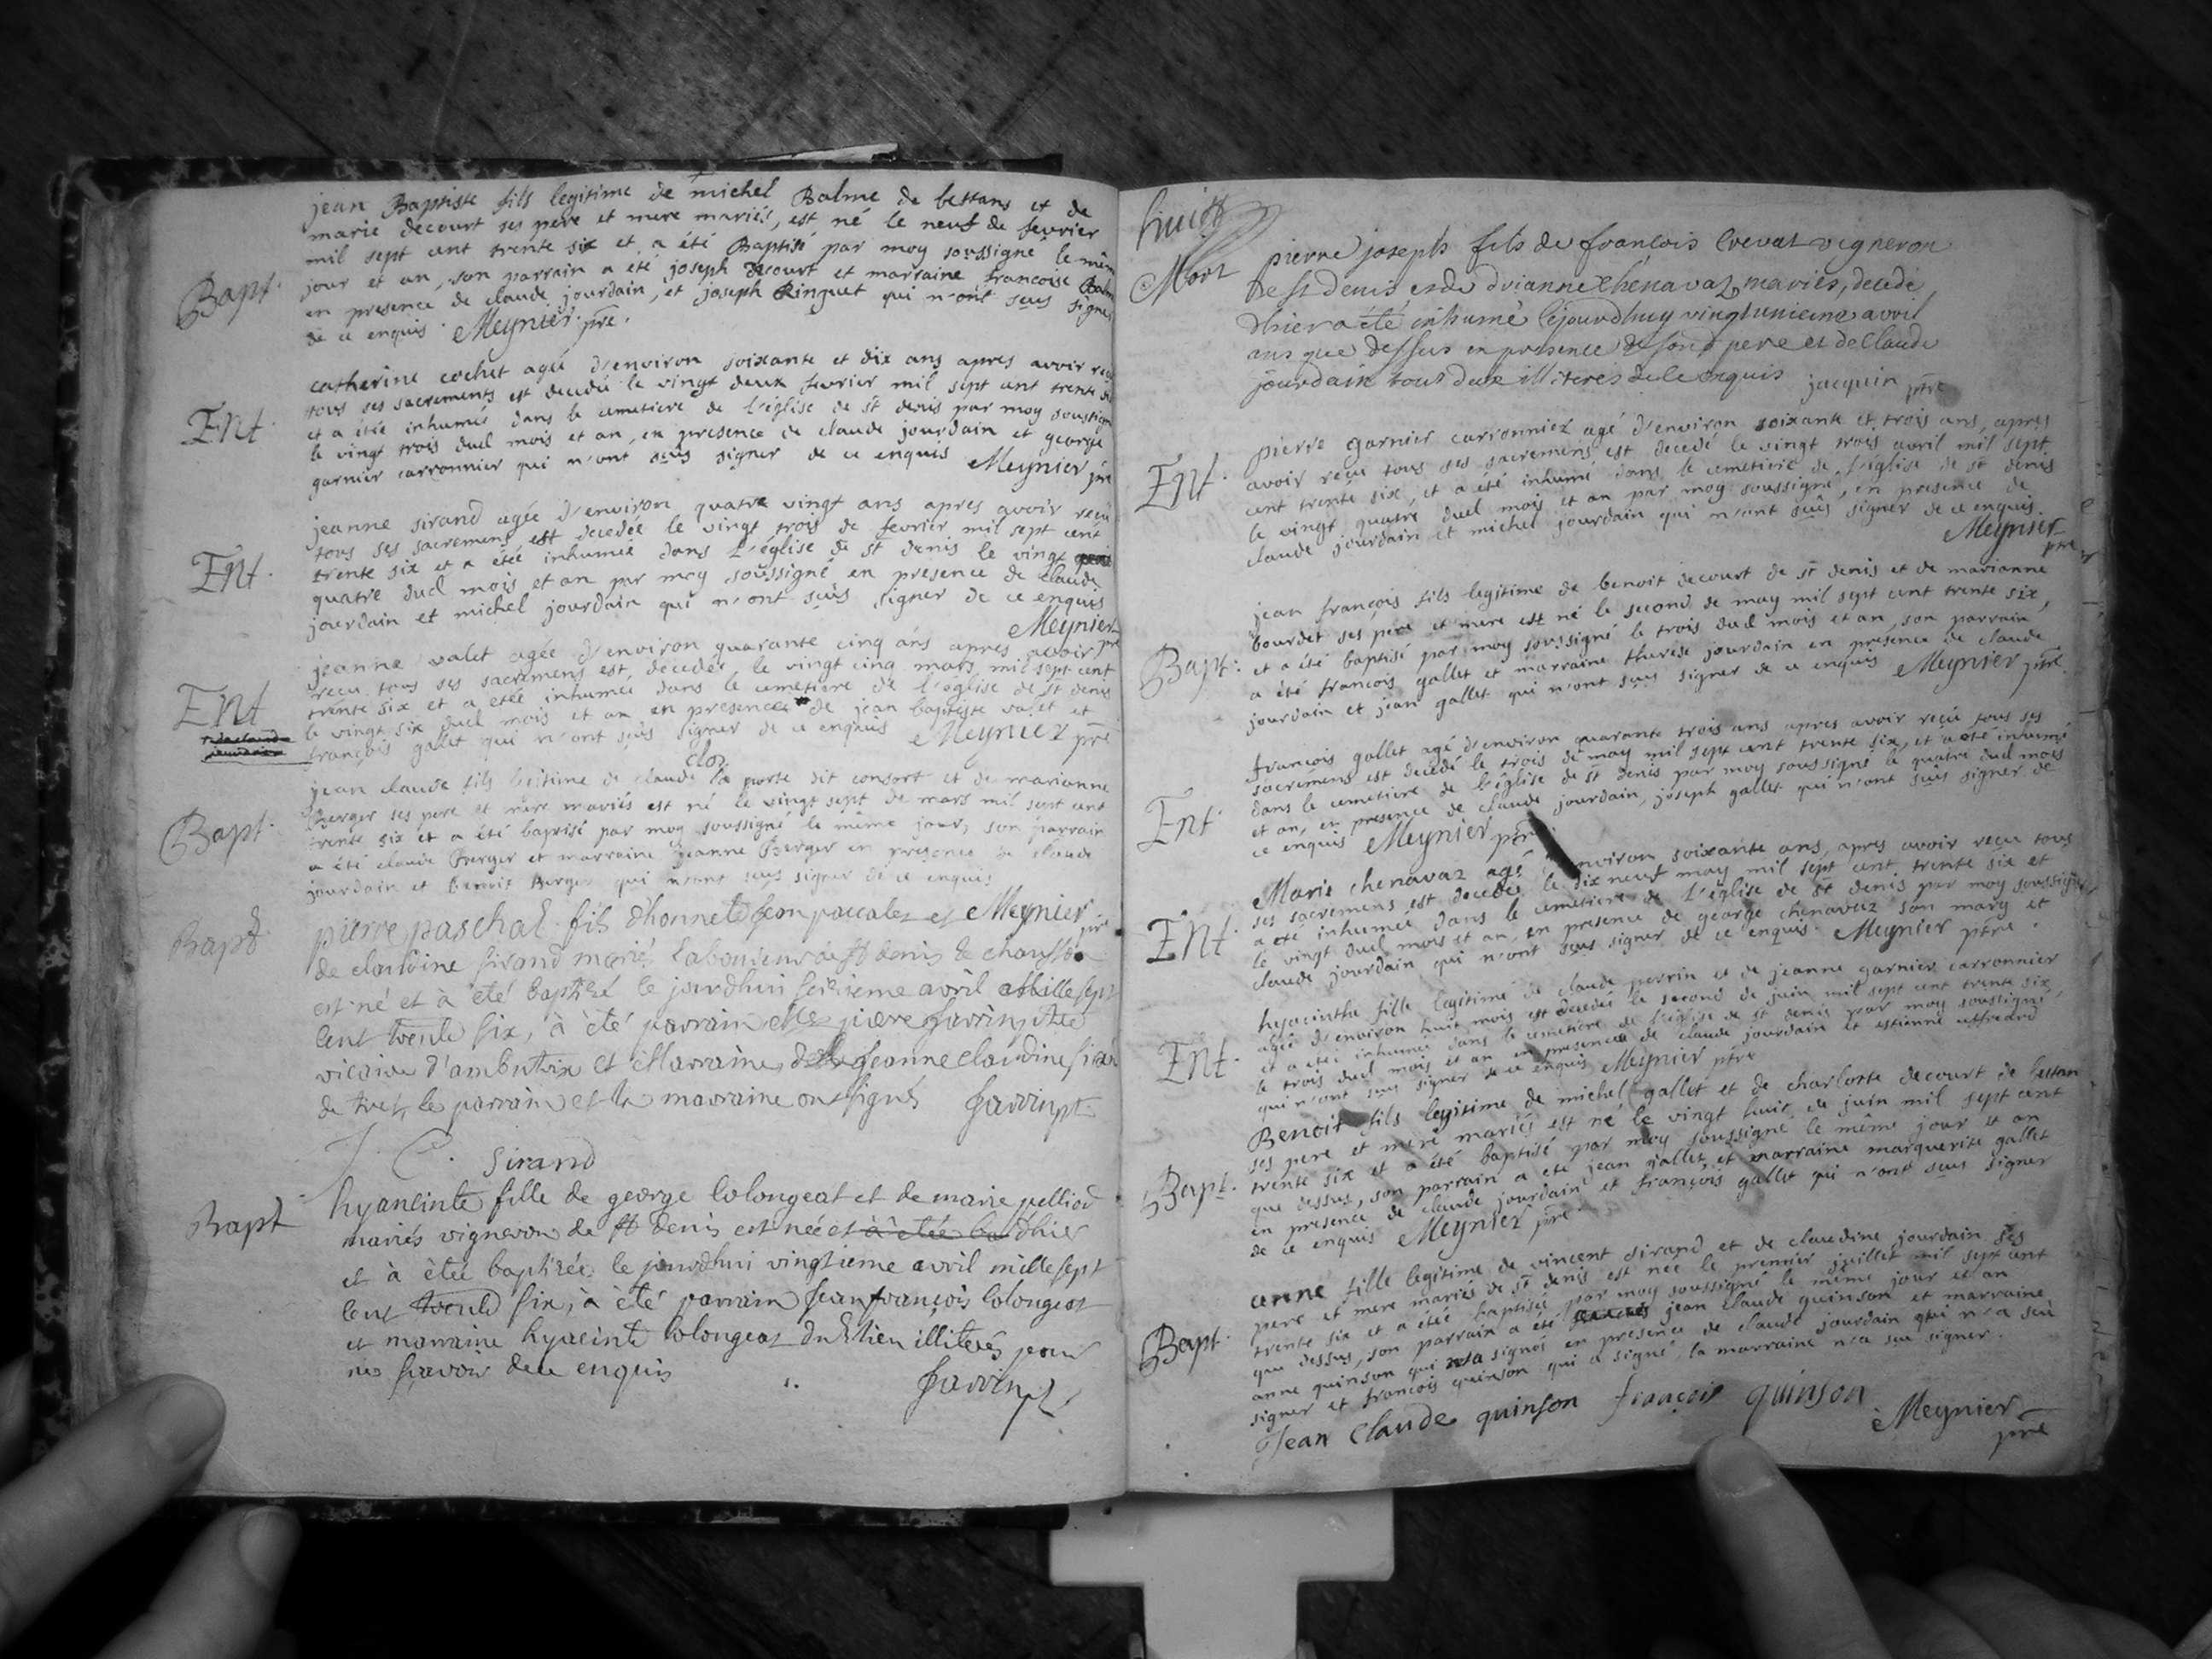 jean Baptiste fils legitime de michel Balme de bettans et de
marie decourt ses pere et mere mariés, est né le neuf de fevrier
mil sept cent trente six et a été Baptisé par moy soussigné le mêm
Bapt. jour et an, son parrain a été joseph decourt et marraine francoise Balm
en presence de claude jourdain, et joseph Ringuet qui n'ont sçus signer
de ce enquis. Meynier ptre.
catherine cochet agée d'environ soixante et dix ans apres avoir reçu
tous ses sacrements est decedée le vingt deux fevrier mil sept cent trente six
Ent. et a étée inhumée dans le cemetiere de l'église de st denis par moy soussign
le vingt trois dud mois et an, en presence de claude jourdain et george
garnier carronnier qui n'ont sçus signer de ce enquis Meynier ptre
jeanne sirand agée d'environ quatre vingt ans apres avoir reçu
tous ses sacremens est decedée le vingt trois de fevrier mil sept cent
Ent. trente six et a étée inhumée dans l'église de st denis le vingt
quatre dud mois et an par moy soussigné en presence de claude
jourdain et michel jourdain qui n'ont sçus signer de ce enquis
Meynier ptre
jeanne valet agée d'environ quarante cinq ans apres avoir
reçu tous ses sacremens est decedée le vingt cinq mars mil sept cent
Ent trente six et a étée inhumée dans le cemetiere de l'église de st denis
le vingt six dud mois et an en presence de jean baptiste valet et
françois gallet qui n'ont sçus signer de ce enquis Meynier ptre
clos
jean claude fils legitime de claude la porte dit consort et de marianne
Berger ses pere et mere mariés est né le vingt sept de mars mil sept cent
Bapt. trente six et a été baptisé par moy soussigné le même jour, son parrain
a été claude Berger et marraine jeanne Berger en presence de claude
jourdain et benoit Berger qui n'ont sçus signer de ce enquis
Meynier ptre
Bapt. pierre paschal fils d'honnete jean et
de claudine sirand mariés laboureur de st denis
est né et à été baptisé le jourdhui seizieme avril mille sept
cent trente six, à été parrain pierre
vicaire d'ambutrix et Marraine jeanne claudine sirand
de le parrain et la marraine ont signé
J. C. Sirand
hyaneinte fille de george Colongeat et de marie
Bapt mariés vigneron de st denis est née et à etée ba dhier
et à étée baptisée le jourdhui vingtieme avril mille sept
cent trente six, à été parrain jean françois Colongeat
et marraine hyacinte Colongeat dud lieu illiterés pour
ne sçavoir de ce enquis
huit
Mort pierre joseph fils de francois Crevat vigneron
de st denis et de chenavaz mariés, decedé
dhier a été inhumé cejourdhuy vingtunieme avril
an que dessus en presence de son pere et de Claude
jourdain tous deux illiteres de ce enquis jacquin ptre
pierre garnier carronnier agé d'environ soixante et trois ans, apres
avoir reçu tous ses sacremens est decedé le vingt trois avril mil sept
Ent. cent trente six, et a été inhumé dans le cemetiere de l'église de st denis
le vingt quatre dud mois et an par moy soussigné, en presence de
claude jourdain et michel jourdain qui n'ont sçûs signer de ce enquis
Meynier ptre
jean françois fils legitime de benoit decourt de st denis et de marianne
bourdet ses pere et mere est né le second de may mil sept cent trente six,
Bapt. et a été baptisé par moy soussigné le trois dud mois et an, son parrain
a été francois gallet et marraine therese jourdain en presence de claude
jourdain et jean gallet qui n'ont sçus signer de ce enquis Meynier ptre
francois gallet agé d'environ quarante trois ans apres avoir reçu tous ses
sacremens est decedé le trois de may mil sept cent trente six, et a été inhumé
Ent. dans le cemetiere de l'église de st denis par moy soussigné le quatre dud mois
et an, en presence de claude jourdain, joseph gallet qui n'ont sçus signer de
ce enquis Meynier ptre
Marie chenavaz agé environ soixante ans, apres avoir reçu tous
ses sacremens est decedée le dix neuf may mil sept cent trente six et
Ent. a été inhumée dans le cemetiere de l'église de st denis par moy soussigné
le vingt dud mois et an, en presence de george chenavaz son mary et
claude jourdain qui n'ont sçus signer de ce enquis. Meynier ptre.
hyacinthe fille legitime de claude perrin et de jeanne garnier carronnier
agée d'environ huit mois est decedée le second de juin mil sept cent trente six
Ent. et a étée inhumée dans le cemetiere de l'église de st denis par moy soussigné
le trois dud mois et an en presence de claude jourdain et estienne
qui n'ont sçus signer de ce enquis Meynier ptre
Benoit fils legitime de michel gallet et de charlotte decourt de bettan
ses pere et mere mariés est né le vingt huit de juin mil sept cent
Bapt. trente six et a été baptisé par moy soussigné le même jour et an
que dessus, son parrain a été jean gallet et marraine marguerite gallet
en presence de claude jourdain et françois gallet qui n'ont sçus signer
de ce enquis Meynier ptre
anne fille legitime de vincent sirand et de claudine jourdain ses
pere et mere mariés de st denis est née le premier juillet mil sept cent
Bapt. trente six et a étée baptisée par moy soussigné le même jour et an
que dessus, son parrain a été jean claude quinson et marraine
anne quinson qui signés en presence de claude jourdain qui n'a sçu
signer et francois quinson qui a signé, la marraine n'a sçu signer.
Jean Claude quinson françois quinson Meynier
ptre